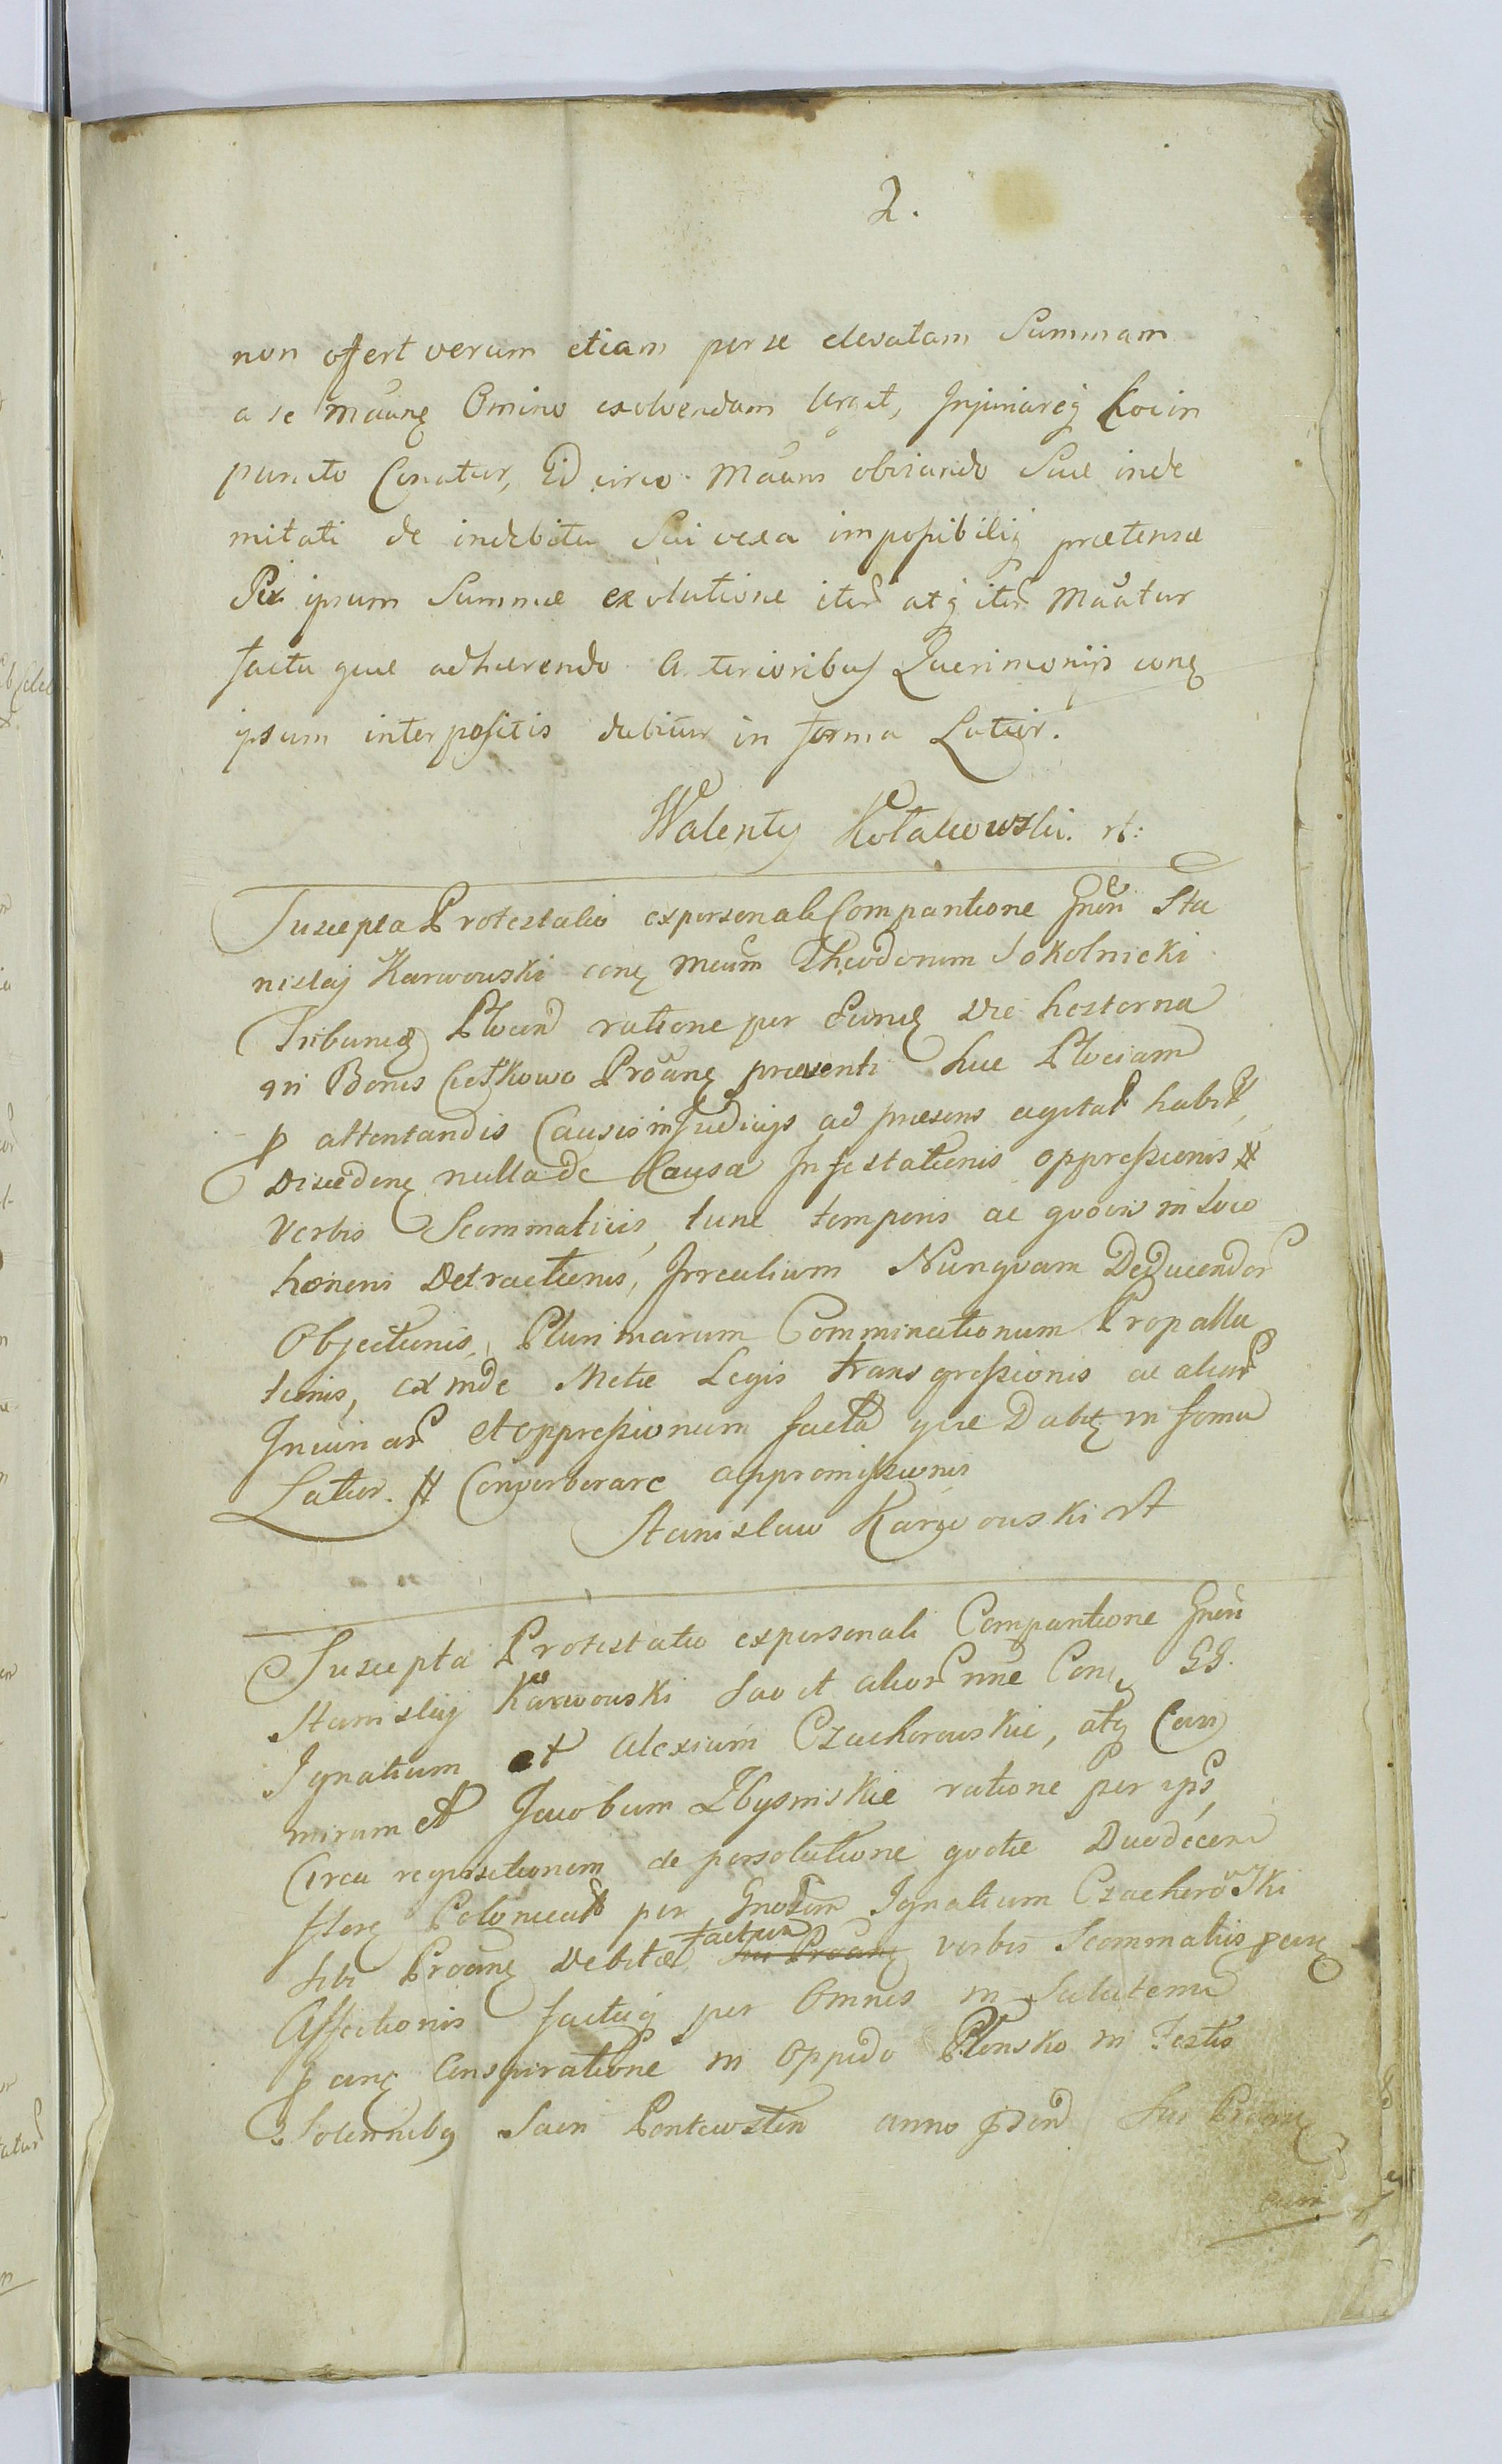 2.
non ofert verum etiam per se elevatam Summam
a se Maune Omino exolvendam Urget, Injuriareq hocin
puncto Conatur, Id circo Mauns obviando Suae inde
mitati de indebita Sui vexa impossibiliq praetensae
Per ipsum Summae exolutione iter atq iter Mauatur
facta quae adhaerendo Anterioribus Querimonijs cone
ipsum interpositis dabitur in forma Latior.
Walenty Kołakowski. rt:
Suscepta Protestatio expersonali Compantione Gnen Sta
nislaj Karwowski cone Mcum Theodorum Sokolnicki
Tribunus Plocen ratione per Eund Die hesterna
in Bonis Ciećkowo Proane praeventi huc Plociam
p attentandis Causis in Judicijs ad praesens agitat habit,
Discedene nulla de Causa Infestationis oppressionis #
Verbis Scommaticis, tunc temporis ac quovis in loco
honoris Detractionis, Irrealium Nunquam Deducendor
Objectionis, Plurimarum Comminationum Propalla
tionis, ex inde Metae Legis transgressionis ac alior
Injuriar et oppressionum facta quae Dabit in forma
Latior. # Converberare appromissionis
Stanislaw Karwowski rt
Suscepta Protestatio expersonali Compantione Gnen
Stanislaj Karwowski Suo et alior nne Cone GG.
Ignatium et Alexium Czachorowskie, atq Casi
mirum et Jacobum Zbyszinskie ratione per ips
Circa requisitionem de persolutione quotae Duodecem
flore Polonical per Gnosum Ignatium Czachorowski
sibi Proane Debitae factam sui Proane verbis Scommatiis
Affectionis factaq per Omnes in Salutem
p ane Conspiratione in Oppido Płonsko in Festis
Solennibq Sacri Pentecosten anno pden Sui Proane
cum